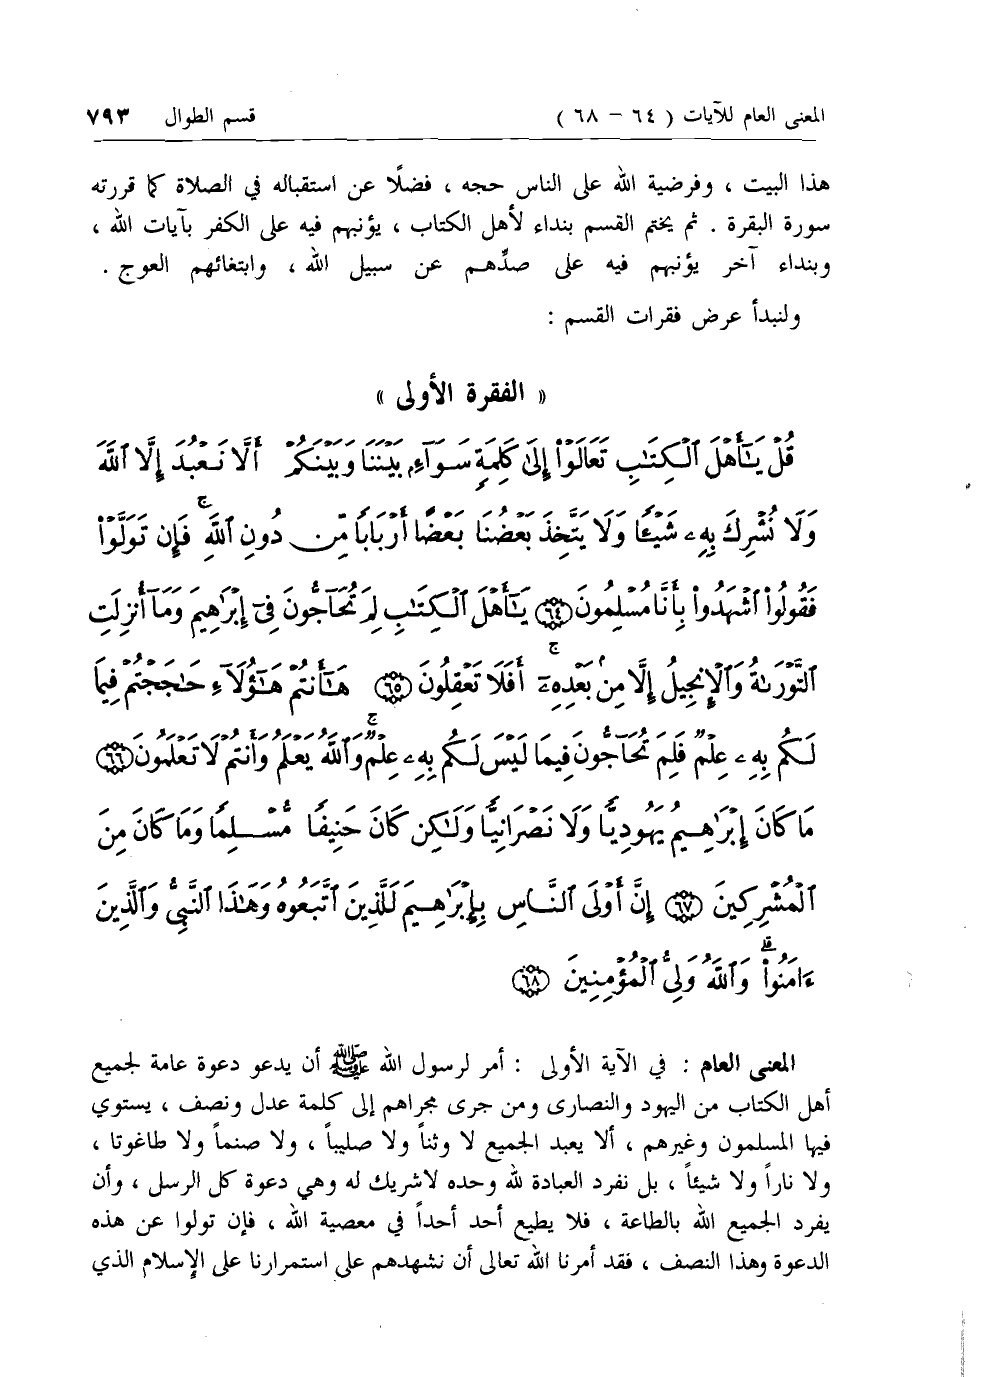 المعنى العام للآيات ( ٦٤ – ٦٨ ) قسم الطوال ٧٩٣
هذا البيت ، وفرضية الله على الناس حجه ، فضلًا عن استقباله في الصلاة كما قررته
سورة البقرة . ثم يختم القسم بنداء لأهل الكتاب ، يؤنبهم فيه على الكفر بآيات الله ،
وبنداء آخر يؤنبهم فيه على صدِّهم عن سبيل الله ، وابتغائهم العوج .
ولنبدأ عرض فقرات القسم :
« الفقرة الأولى »
قُلْ يَٰٓأَهْلَ ٱلْكِتَٰبِ تَعَالَوْا۟ إِلَىٰ كَلِمَةٍ سَوَآءٍۭ بَيْنَنَا وَبَيْنَكُمْ أَلَّا نَعْبُدَ إِلَّا ٱللَّهَ
وَلَا نُشْرِكَ بِهِۦ شَيْـًٔا وَلَا يَتَّخِذَ بَعْضُنَا بَعْضًا أَرْبَابًا مِّن دُونِ ٱللَّهِ ۚ فَإِن تَوَلَّوْا۟
فَقُولُوا۟ ٱشْهَدُوا۟ بِأَنَّا مُسْلِمُونَ ٦٤ يَٰٓأَهْلَ ٱلْكِتَٰبِ لِمَ تُحَآجُّونَ فِىٓ إِبْرَٰهِيمَ وَمَآ أُنزِلَتِ
ٱلتَّوْرَىٰةُ وَٱلْإِنجِيلُ إِلَّا مِنۢ بَعْدِهِۦٓ ۚ أَفَلَا تَعْقِلُونَ ٦٥ هَٰٓأَنتُمْ هَٰٓؤُلَآءِ حَٰجَجْتُمْ فِيمَا
لَكُم بِهِۦ عِلْمٌ فَلِمَ تُحَآجُّونَ فِيمَا لَيْسَ لَكُم بِهِۦ عِلْمٌ ۚ وَٱللَّهُ يَعْلَمُ وَأَنتُمْ لَا تَعْلَمُونَ ٦٦
مَا كَانَ إِبْرَٰهِيمُ يَهُودِيًّا وَلَا نَصْرَانِيًّا وَلَٰكِن كَانَ حَنِيفًا مُّسْلِمًا وَمَا كَانَ مِنَ
ٱلْمُشْرِكِينَ ٦٧ إِنَّ أَوْلَى ٱلنَّاسِ بِإِبْرَٰهِيمَ لَلَّذِينَ ٱتَّبَعُوهُ وَهَٰذَا ٱلنَّبِىُّ وَٱلَّذِينَ
ءَامَنُوا۟ ۗ وَٱللَّهُ وَلِىُّ ٱلْمُؤْمِنِينَ ٦٨
المعنى العام : في الآية الأولى : أمر لرسول الله ﷺ أن يدعو دعوة عامة لجميع
أهل الكتاب من اليهود والنصارى ومن جرى مجراهم إلى كلمة عدل ونصف ، يستوي
فيها المسلمون وغيرهم ، ألا يعبد الجميع لا وثناً ولا صليباً ، ولا صنماً ولا طاغوتا ،
ولا ناراً ولا شيئاً ، بل نفرد العبادة لله وحده لاشريك له وهي دعوة كل الرسل ، وأن
يفرد الجميع الله بالطاعة ، فلا يطيع أحد أحداً في معصية الله ، فإن تولوا عن هذه
الدعوة وهذا النصف ، فقد أمرنا الله تعالى أن نشهدهم على استمرارنا على الإسلام الذي